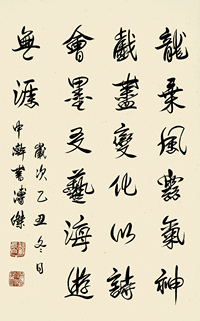 龍乘風雲氣神
戲盡變化以詩
會墨交藝海遊
無涯
歲次乙丑冬月
書溥傑